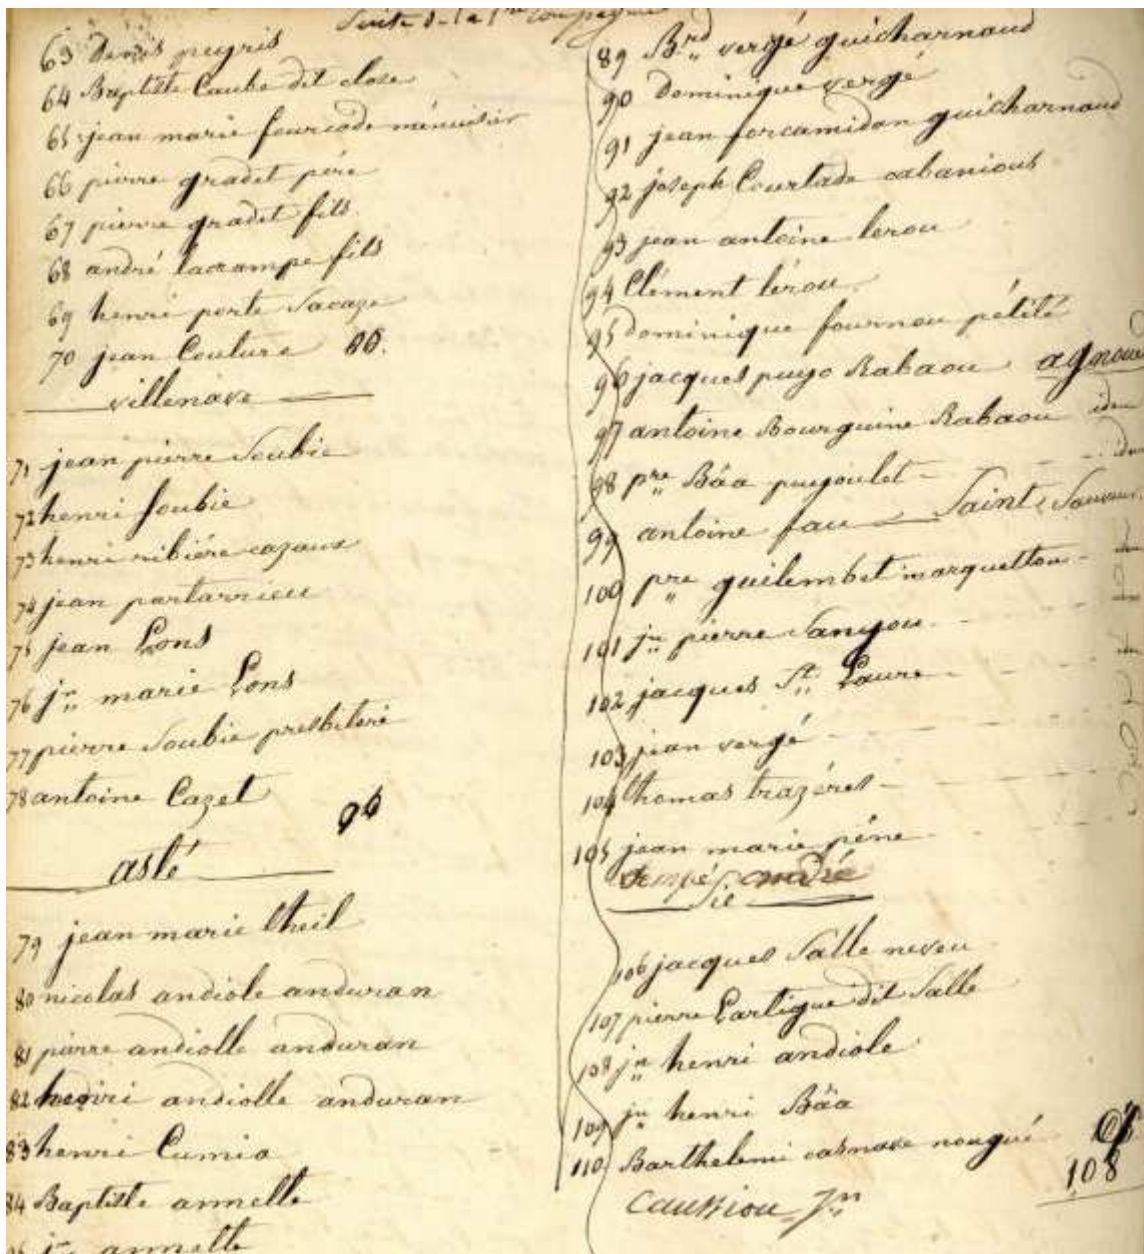 Suite de la 1re compagnie
63 Denis peyris
64 Baptiste Caube dit close
65 jean marie fourcade ménuisier
66 pierre gradet père
67 pierre gradet fils
68 andré lacrampe fils
69 henri porte Sacaze
70 jean Couture 88.
villenave
71 jean pierre Soubie
72 henri Soubie
73 henri ribiére cazaux
74 jean partarrieu
75 jean Lons
76 jn marie Lons
77 pierre Soubie presbiteri
78 antoine Cazet
96
asté
79 jean marie theil
80 nicolas andiole anduran
81 pierre andiolle anduran
82 henri andiolle anduran
83 henri Cumia
84 Baptiste annette
jn annette
89 Brd vergé guicharnaud
90 dominique vergé
91 jean forcamidan guicharnaud
92 joseph Courtade cabanious
93 jean antoine lerou
94 Clément lérou
95 dominique fournou pétité
96 jacques puyo Rabaou agnoued
97 antoine Bourguine Rabaou idem
98 pre Bâa pujoulet idem
99 antoine fau Saint Sauveur
100 pre guilembet marquettou
101 jn pierre Sanjou
102 jacques St Laure
103 jean vergé
104 thomas trazéres
105 jean marie péne
Sempé andré
Sie
106 jacques Salle neveu
107 pierre Lartigue dit Salle
108 jn henri andiole
109 jn henri Bâa
110 Barthelemi casnave nougué
108
Caussiou Jn